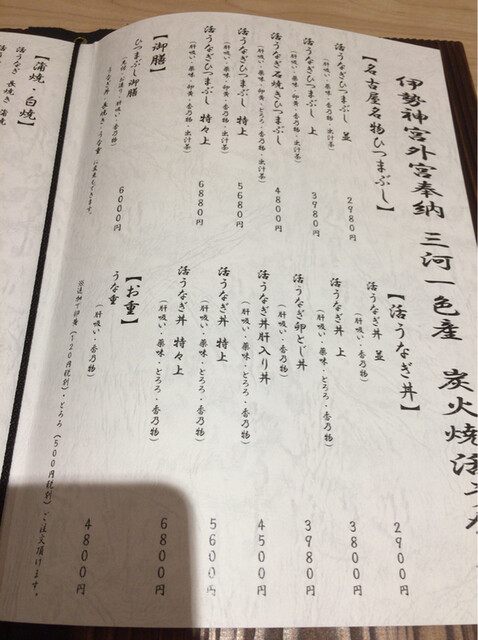 伊勢神宮外宮奉納 三河一色産 炭火焼活う
【名古屋名物ひつまぶし】
活うなぎひつまぶし 並
(肝吸い・薬味・香乃物・出汁茶)
2980円
活うなぎひつまぶし 上
(肝吸い・薬味・香乃物・出汁茶)
3980円
活うなぎ石焼きひつまぶし
(肝吸い・薬味・とろろ・香乃物・出汁茶)
4800円
活うなぎひつまぶし 特上
(肝吸い・薬味・卵黄・香乃物・出汁茶)
5680円
活うなぎひつまぶし 特々上
(肝吸い・薬味・卵黄・香乃物・出汁茶)
6880円
【御膳】
ひつまぶし御膳
6000円
【活うなぎ丼】
活うなぎ丼 並
(肝吸い・香乃物)
2900円
活うなぎ丼 上
(肝吸い・薬味・とろろ・香乃物)
3800円
活うなぎ卯とじ丼
(肝吸い・香乃物)
3980円
活うなぎ丼肝入り丼
(肝吸い・薬味・とろろ・香乃物)
4500円
活うなぎ丼 特上
(肝吸い・薬味・とろろ・香乃物)
5600円
活うなぎ丼 特々上
(肝吸い・薬味・とろろ・香乃物)
6800円
【お重】
うな重
(肝吸い・香乃物)
4800円
※追加で卵黄(120円税別)・とろろ(500円税別)もご注文頂けます。
【蒲焼・白焼】
活うなぎ 長焼き 蒲焼